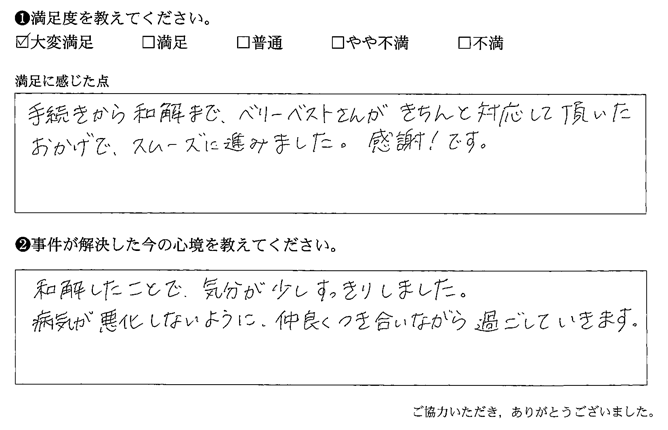 ❶満足度を教えてください。
☑大変満足 □満足 □普通 □やや不満 □不満
満足に感じた点
手続きから和解まで、ベリーベストさんがきちんと対応して頂いた
おかげで、スムーズに進みました。感謝！です。
❷事件が解決した今の心境を教えてください。
和解したことで、気分が少しすっきりしました。
病気が悪化しないように、仲良くつき合いながら過ごしていきます。
ご協力いただき，ありがとうございました。